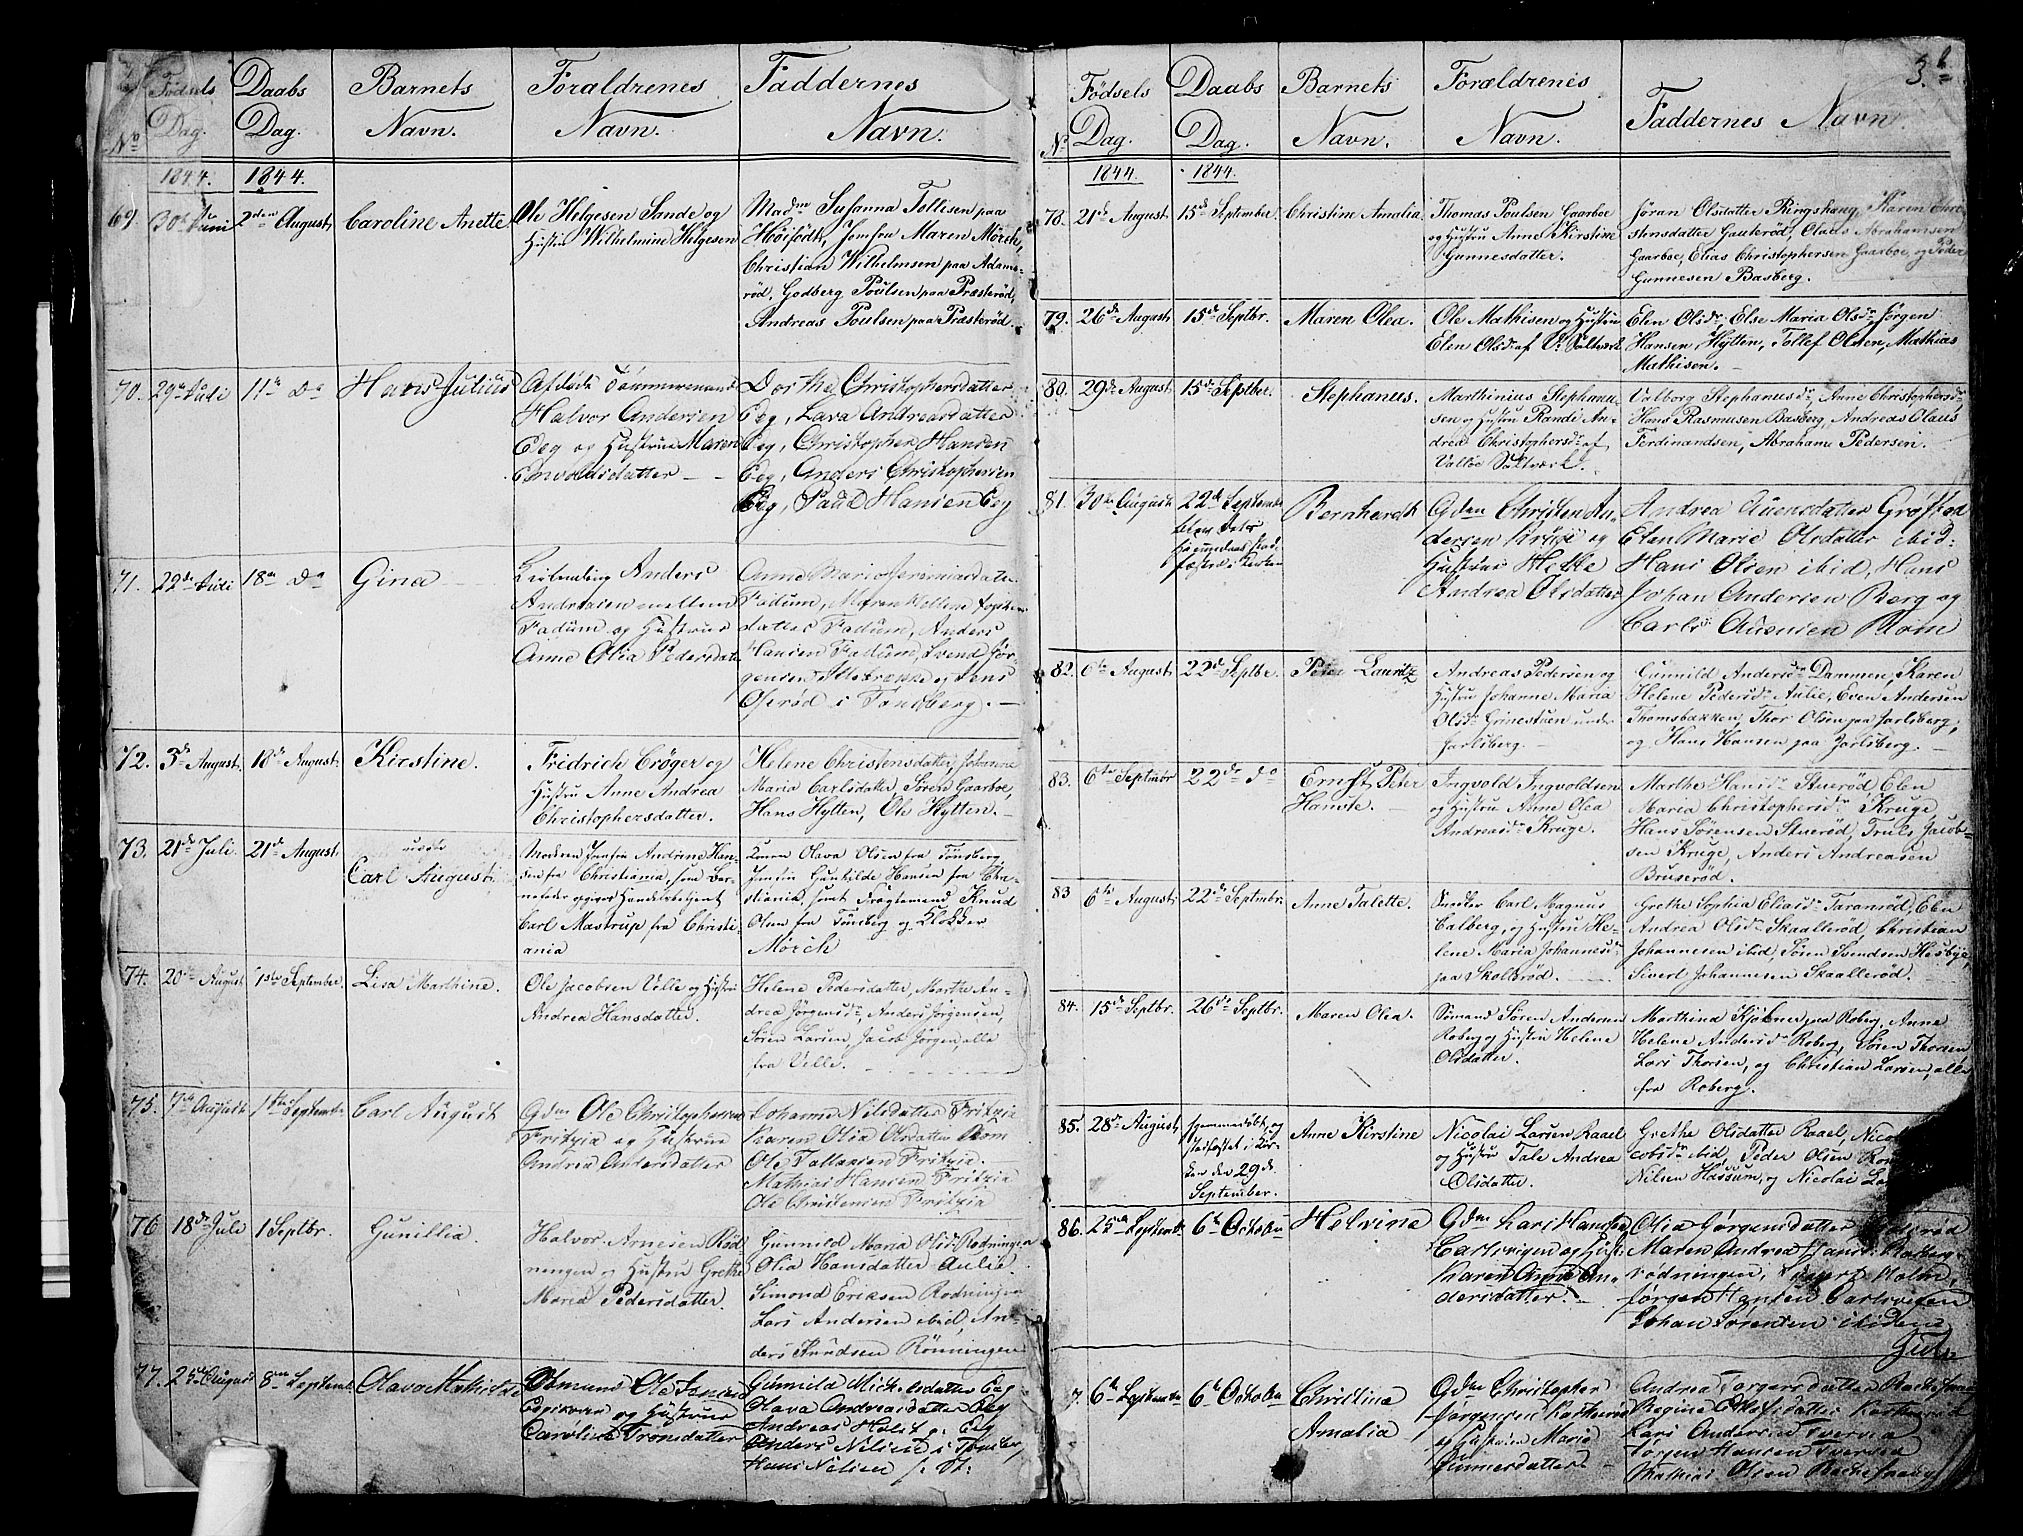 Fødsels Daabs Barnets Foraldrenes Faddernes
No Dag. Dag. Navn. Navn. Navn.
1844. 1844.
69. 30te Juni 2den August Caroline Anette Ole Helgesen Sande og
Hustru Wilhelmine Helgesen
Madm Susanna Tollisen paa
Høifødt, Jomfru Maren Mörch,
Christian Wilhelmsen paa Adams-
rød, Godberg Poulsen paa Præsterød,
Andreas Poulsen paa Præsterød.
70. 29de Juli 11te Do Hans Julius Afdøde Tømmermand
Halvor Andersen
Eeg og Hustrue Maren
Engvoldsdatter
Dorthe Christophersdatter
Eeg, Lava Andreasdatter
Eeg, Christopher Hansen
Eeg, Anders Christophersen
Eeg, Paul Hansen Eeg
71. 22de Juli 18de Do Gina Anders
Andersen mellem
Fadum og Hustrue
Anne Olia Pedersdatter
Anne Maria Jeremiasdatter
Fadum,
Fadum, Anders
Hansen Fadum, Svend Jør-
gensen og Jens
Oserød i Tønsberg.
72. 3de August. 18de August. Kirstine. Fridrich Crøger og
Hustru Anne Andrea
Christophersdatter.
Helene Christensdatter, Johanna
Maria Carlsdatter, Søren Gaarboe,
Hans Hytten, Ole Hytten.
73. 21de Juli. 21de August. uægte
Carl August Moderen Jomfru Andrine Han-
sen fra Christiania, som Bar-
nefader opgives Handelsbetjent
Carl Mastrup fra Christi-
ania
Konen Olava Olsen fra Tønsberg,
Jomfru Gunhilde Hansen fra Chri-
stiania, samt Knud
Olsen fra Tønsberg og Klokker
Mørch
74. 20de August 1ste September Lisa Marthine. Ole Jacobsen Velle og Hustru
Andrea Hansdatter.
Helene Pedersdatter, Marthe An-
drea Jørgensdr, Anders Jørgensen,
Søren Larsen, Jacob Jørgen, alle
fra Velle.
75. 7de August 1ste September Carl August Gdm Ole Christophersen
Fritzia og Hustrue
Andrea Andersdatter
Johanne Nilsdatter Fritzia
Karen Olia Olsdatter Rom
Ole Tallaksen Fritzia.
Mathias Hansen Fritzia
Ole Christensen Fritzia
76 18de Juli 1 Septbr. Gunillia. Halvor Arnesen Rød-
ningen og Hustru Grethe
Maria Pedersdatter.
Gunnild Maria Olsdr Rødningen
Olia Hansdatter Aulie.
Simond Eriksen Rødningen
Lars Andersen ibid, An-
ders Knudsen Rønningen
77. 25de August 8de Septembr Olava Mathilde Osmund Ole
og Hustrue
Caroline Tronsdatter
Gunnild Mickelsdatter Eeg
Olava Andreasdatter Eeg
Andreas Holst Eeg
Anders Nilsen i Tønsberg
Hans Nilsen
3.b
Fødsels Daabs Barnets Forældrenes Faddernes Navn
No Dag. Dag. Navn. Navn.
1844. 1844.
78. 21de August 15de September. Christine Amalia. Thomas Poulsen Gaarboe
og Hustru Anne Kirstine
Gunnesdatter.
Jøran Olsdatter Ringshaug, Karen Chri-
stensdatter Gauterød, Olaus Abrahamsen
Gaarboe, Elias Christophersen Gaarboe, og Peder
Gunnesen Basberg.
79. 26de August 15de Septbr. Maren Olea. Ole Mathisen og Hustru
Elen Olsdr af V. Saltværk
Elen Olsdr, Else Maria Olsdr, Jørgen
Hansen, Hytten, Tollef Olsen, Mathias
Mathisen.
80. 29de August 15de Septber. Stephanus. Marthinius Stephanu-
sen og Hustru Randi An-
drea Christophersdr af
Valløe Saltværk.
Valborg Stephanusdr, Anne Christophersdr,
Hans Rasmusen Basberg, Andreas Olaus
Ferdinandsen, Abrahame Pedersen.
81. 30te August 22de September
Bernhardt Gdm Christen An-
dersen Kruge og
Hustrue Helle
Andrea Olsdatter
Andrea Auensdatter Grøfsted
Elen Marie Olsdatter ibid:
Hans Olsen ibid, Hans
Johan Andersen Berg og
Carls Auensen Rom
82. 6te August 22de Septbr. Peter Lauritz Andreas Pedersen og
Hustru Johanne Maria
Olsdr Grinestuen under
Jarlsberg.
Gunnild Andersdr Dammen, Karen
Helene Pedersdr Aulie, Even Andersen
Thomsbakken, Thor Olsen paa Jarlsberg,
og Hans Hansen paa Jarlsberg.
83. 6te Septmbr 22de do Ernst Peter
Hanste. Ingvold Ingvoldsen
og Hustru Anne Olea
Andreasdr Kruge.
Marthe Hansdr Stuerød, Elen
Maria Christophersdr Kruge
Hans Sørensen Stuerød, Truls Jacob-
sen Kruge, Anders Andreasen
Bruserød.
83 6te August 22de Septembr. Anne Talette. Smeder Carl Magnus
Calberg, og Hustru He-
lene Maria Johannesdr
paa Skolbrød.
Grethe Sophia Eliasdr Taranrød, Elen
Andrea Olsdr Skaallerød, Christian
Johannesen ibid, Søren Svendsen Hesbye,
Sivert Johannesen Skaallerød.
84. 15de Septbr. 26de Septbr. Maren Olea. Sømand Søren Andersen
Roberg og Hustru Helene
Olsdatter.
Marthina Kjølner paa Roberg, Anne
Helene Andersdr Roberg, Søren Thorsen
Lars Thorsen, og Christian Larsen, alle
fra Roberg.
85. 28de August hjemmedøbt, og
stadfæstet i Kir-
ken den 29de
September.
Anne Kirstine Nicolai Larsen Raael
og Hustru Tale Andrea
Olsdatter.
Grethe Olsdatter Raael,
cobsdr ibid, Peder Olsen
Nilsen Hassum, og Nicolai
86. 25de Septembr 6te October Helvine Gdm Lars Hansen
Carlsvigen og Hust:
Karen Anne An-
dersdatter.
Olia Jørgensdatter
Maren Andrea Hansdr Roberg
rødningen, Holm,
Jørgen Hansen Carlsvigen
Johan Sørensen ibidem
7. 6te September 6te October Christina
Amalia Gdm Christopher
Jørgensen
og Hustrue Maria
Gunnersdatter
Andrea Torgersdatter
Regine Olafsdatter
Lars Andersen Tversea
Jørgen Hansen Tversea
Mathias Olsen